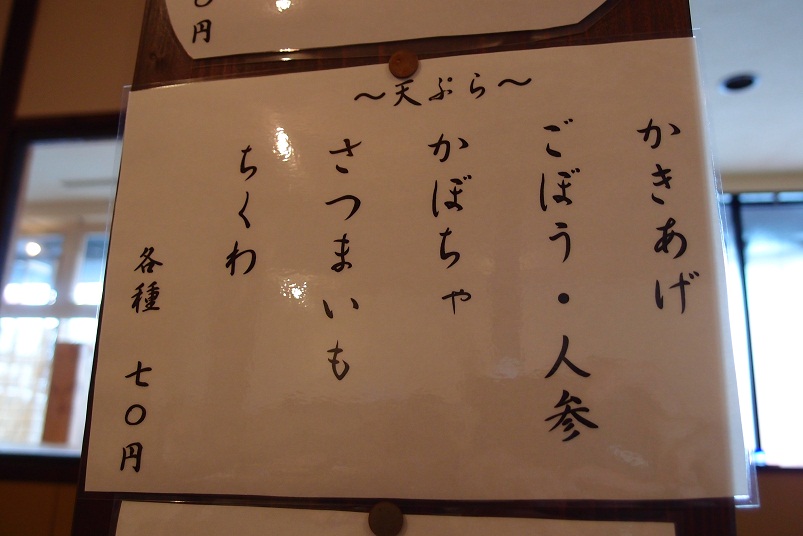 〇円
〜天ぷら〜
かきあげ
ごぼう・人参
かぼちゃ
さつまいも
ちくわ
各種 七〇円